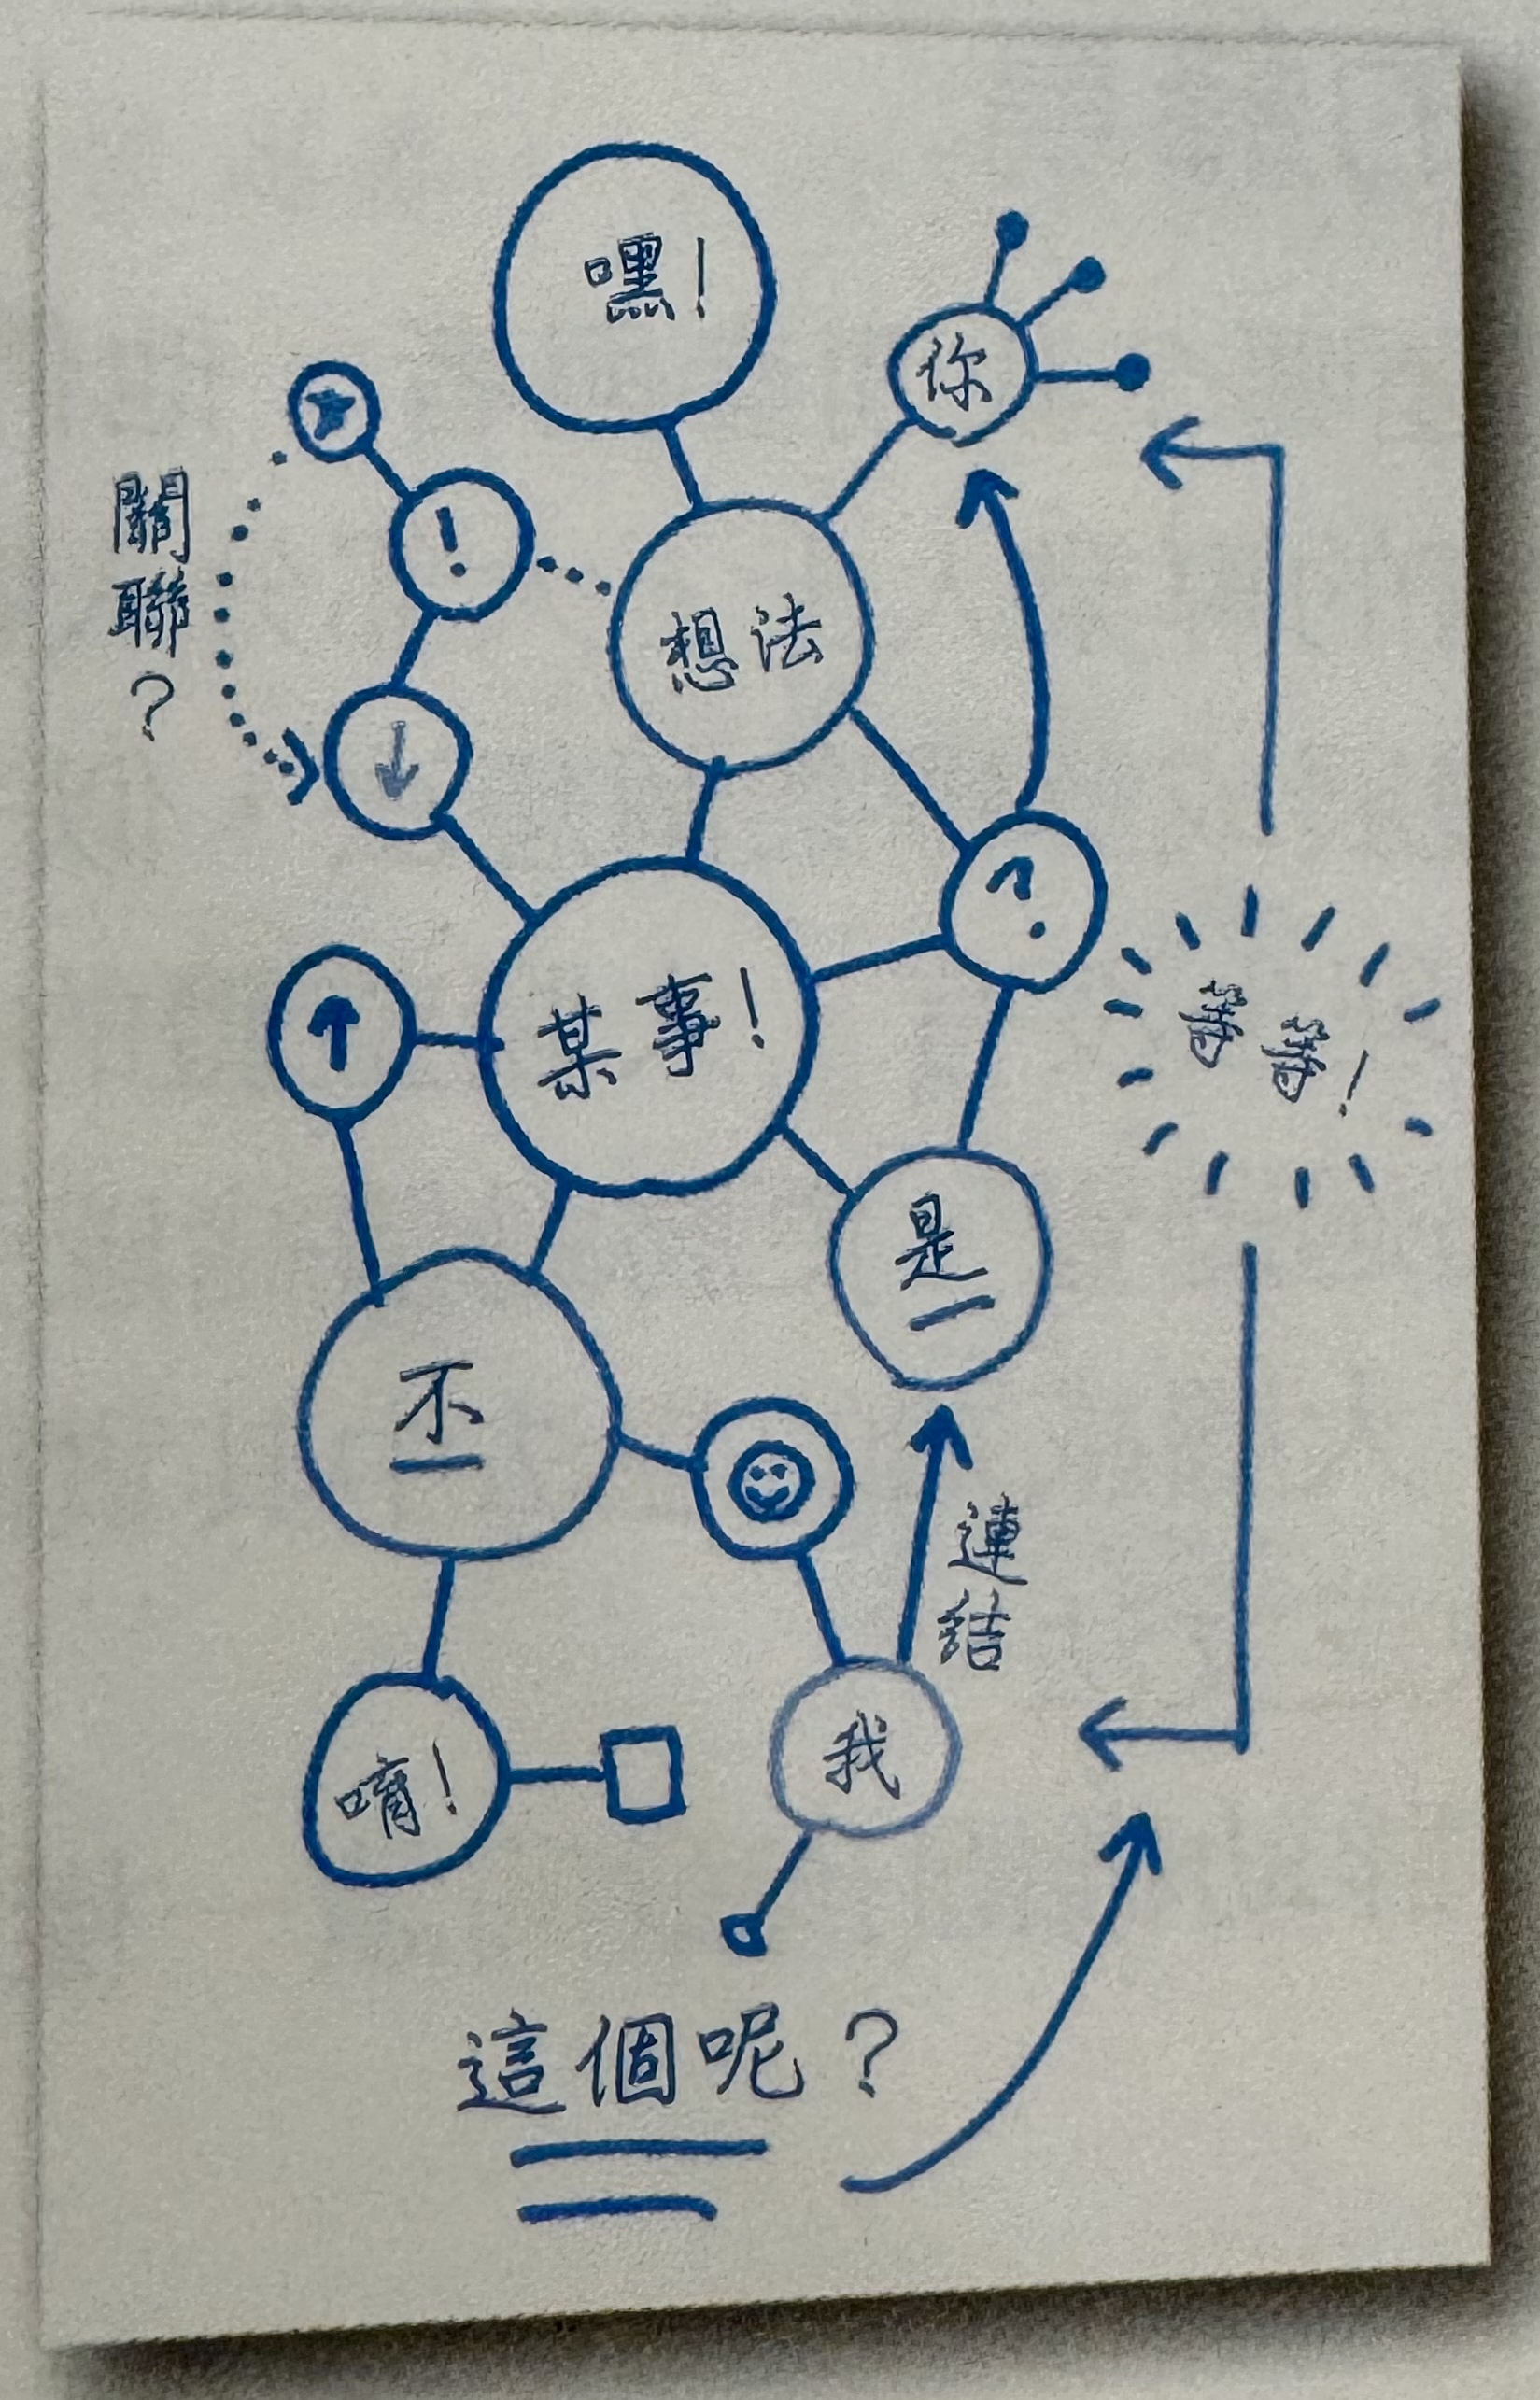 嘿!
你
!
關聯?
想法
?
某事!
等等!
是
不
連結
我
唷!
這個呢?